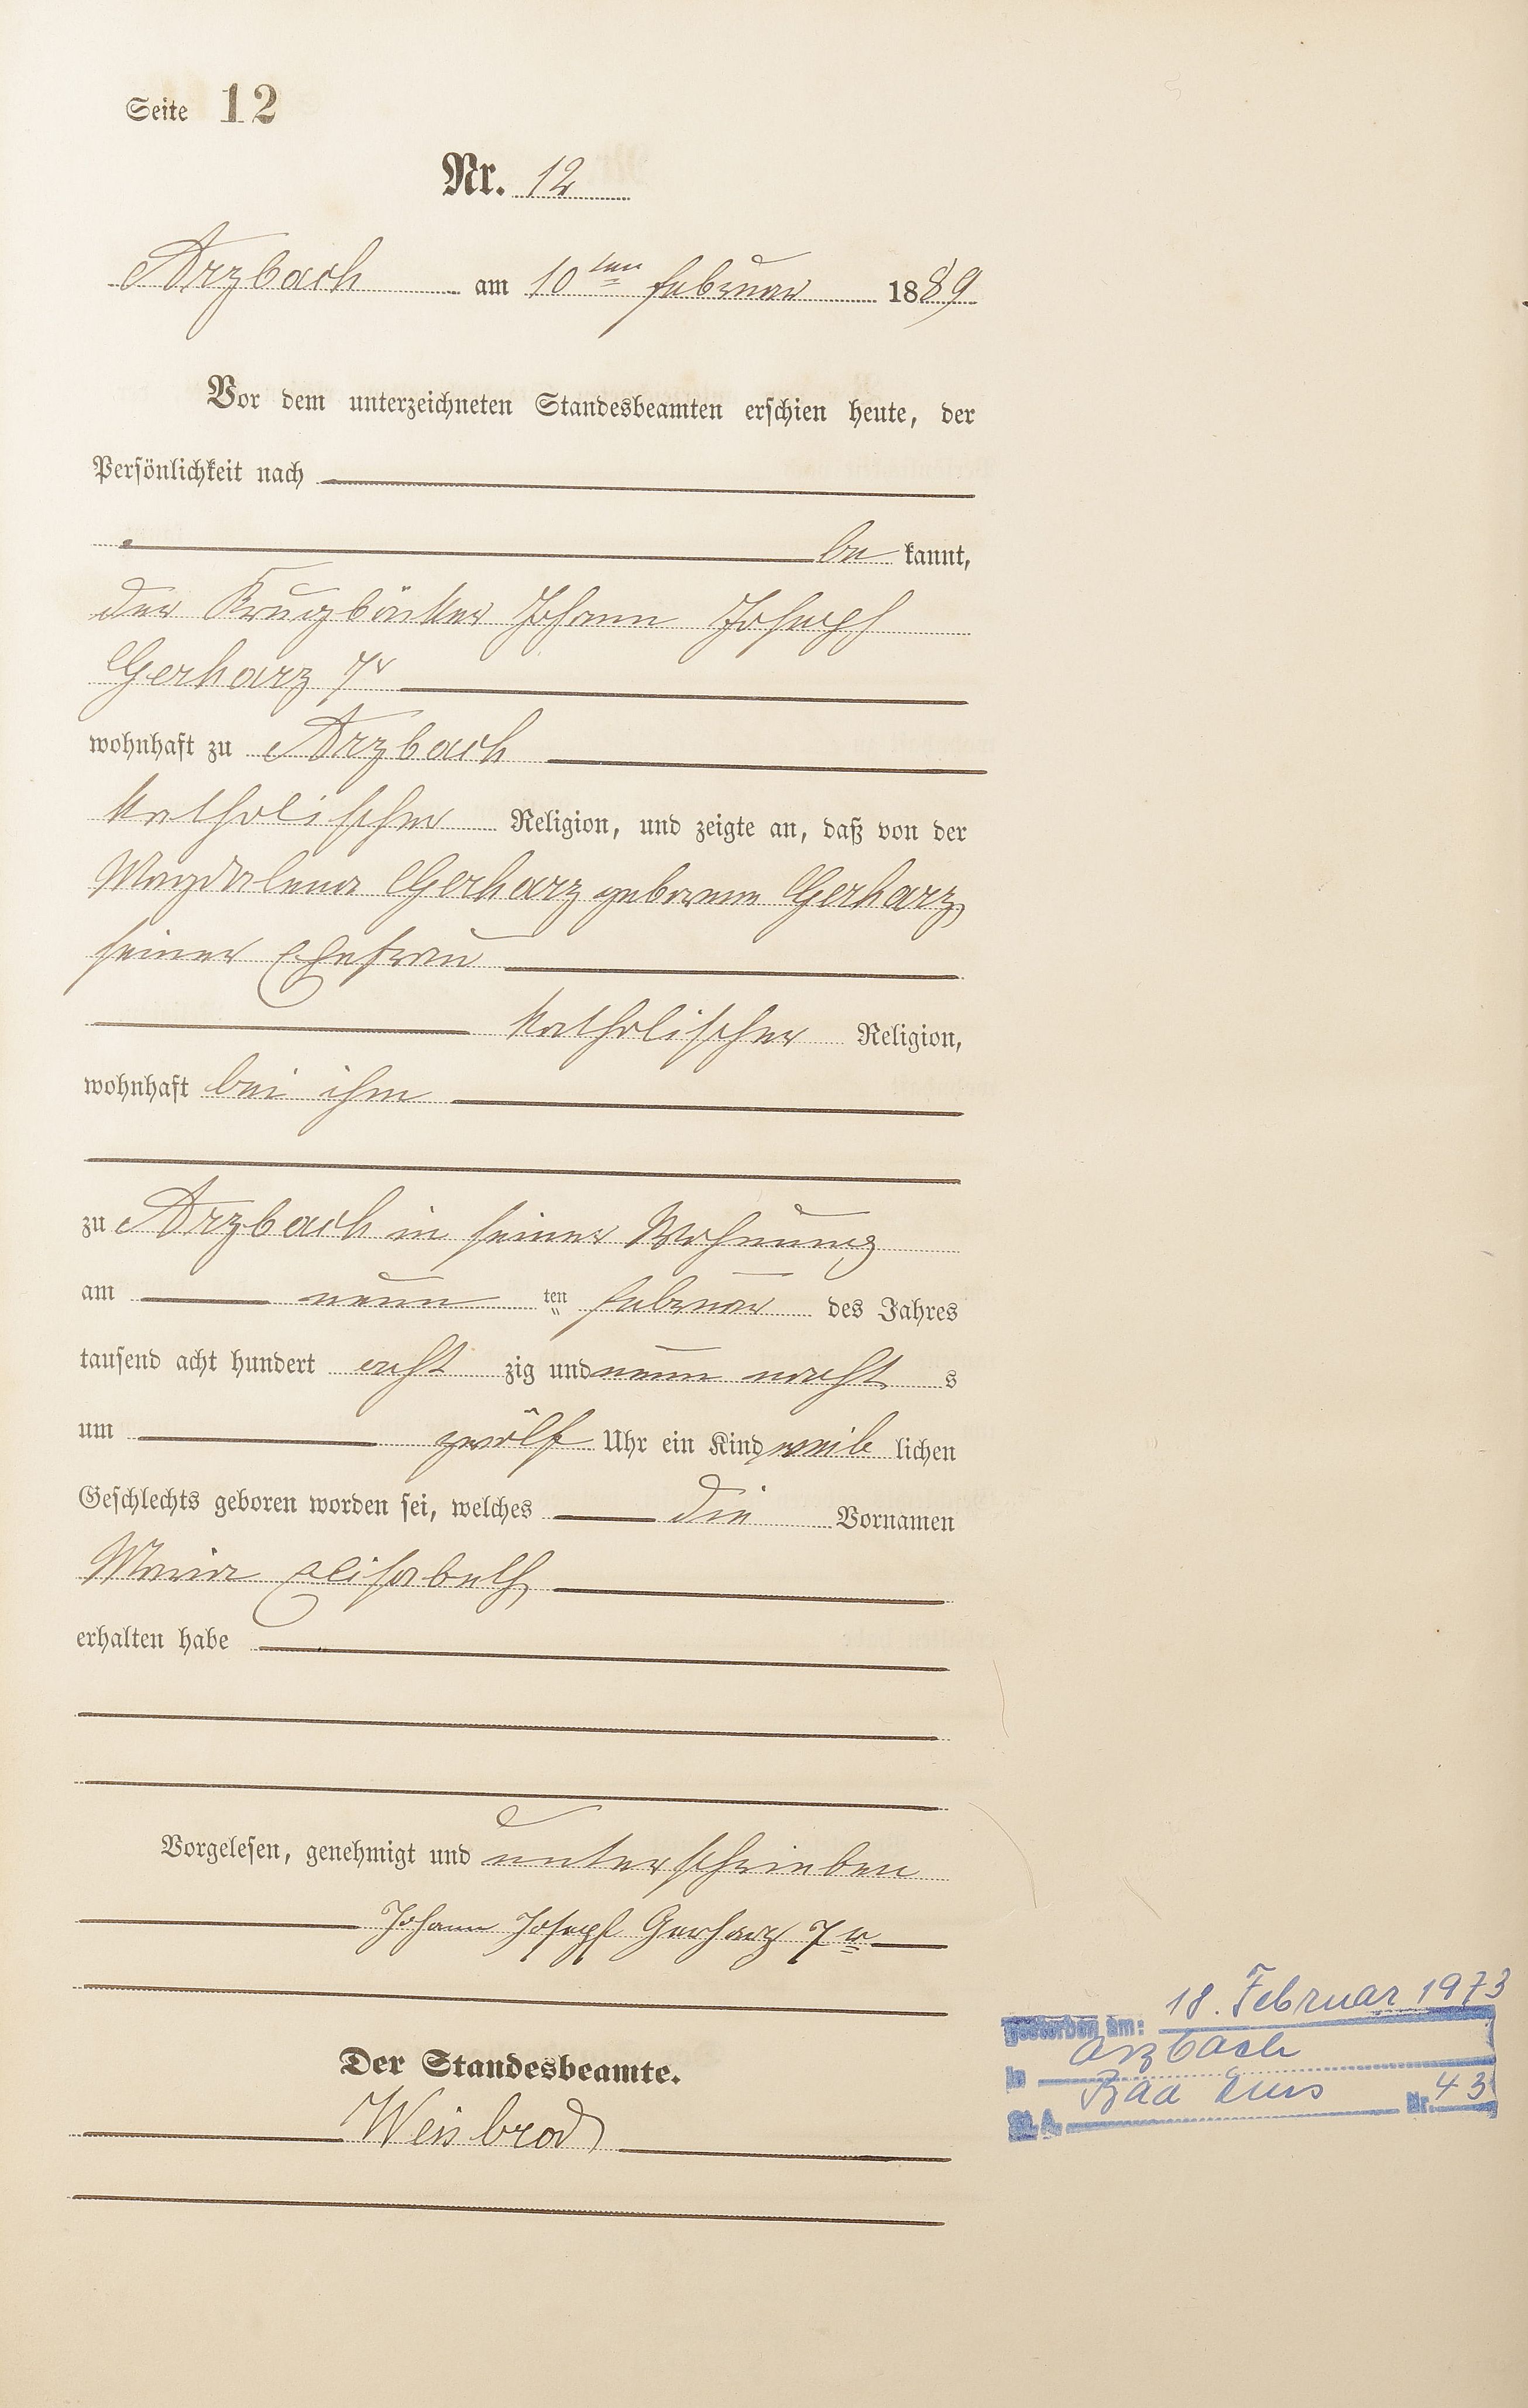 Seite 12
Nr. 12
Arzbach am 10ten Februar 1889
Vor dem unterzeichneten Standesbeamten erschien heute, der
Persönlichkeit nach
be kannt,
der Krugbäcker Johann Joseph
Gerharz 7r
wohnhaft zu Arzbach
katholischer Religion, und zeigte an, daß von der
Magdalena Gerharz geborene Gerharz,
seiner Ehefrau
katholischer Religion,
wohnhaft bei ihm
zu Arzbach in seiner Wohnung
am neun ten Februar des Jahres
tausend acht hundert acht zig und neun nacht s
um zwölf Uhr ein Kind weib lichen
Geschlechts geboren worden sei, welches die Vornamen
Maria Elisabeth
erhalten habe
Vorgelesen, genehmigt und unterschrieben
Johann Joseph Gerharz 7r
Der Standesbeamte.
Weisbrod
gestorben am: 18. Februar 1973
in Arzbach
St. A. Bad Ems Nr. 43